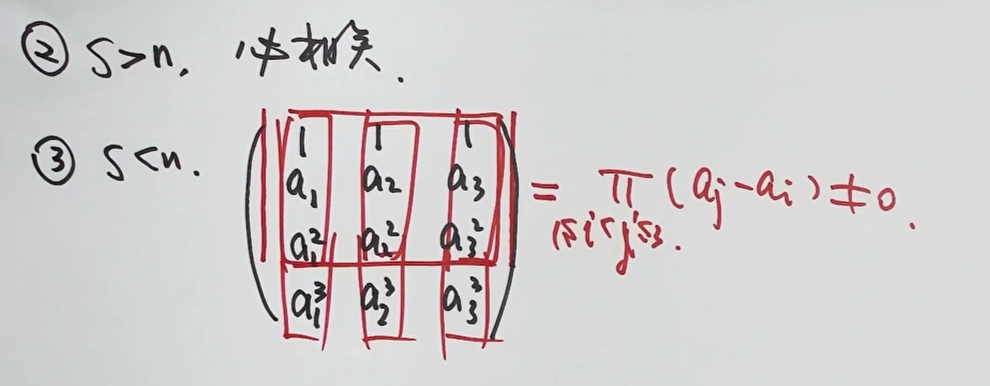 ② S>n. 必相关.
③ S<n.
1 1 1
a₁ a₂ a₃
a₁² a₂² a₃²
a₁³ a₂³ a₃³
= Π (aⱼ-aᵢ) ≠0.
1≤i<j≤3.